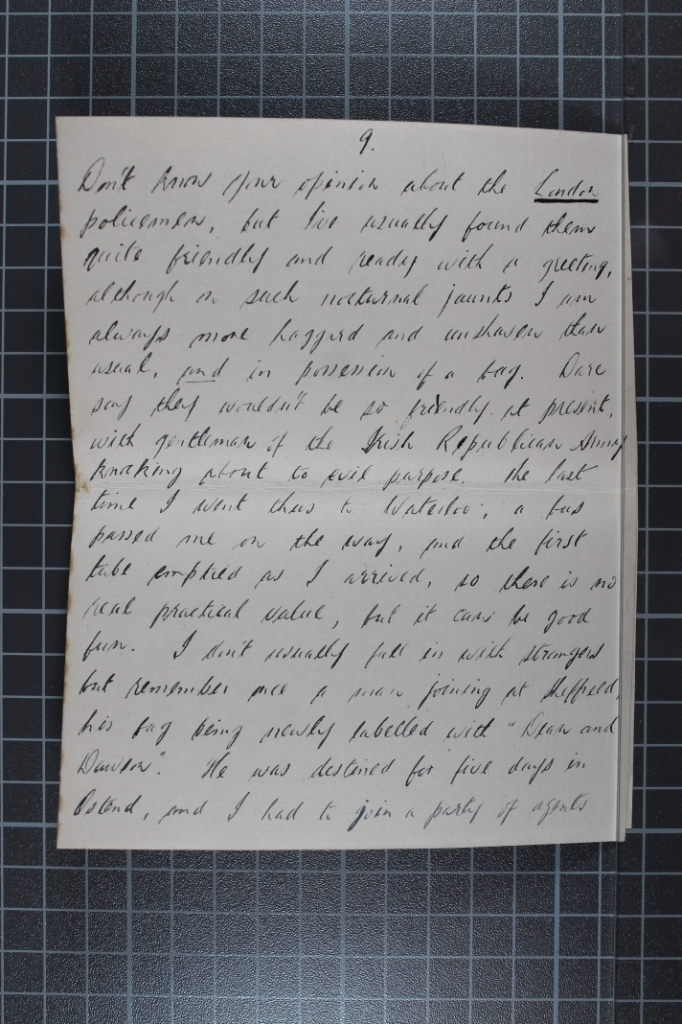 9.
Don't know your opinion about the London
policemen, but I've usually found them
quite friendly and ready with a greeting,
although on such nocturnal jaunts I am
always more haggard and unshaven than
usual, and in possession of a bag. Dare
say they wouldn't be so friendly at present,
with gentleman of the Irish Republican Army
knocking about to evil purpose. The last
time I went thus to Waterloo, a bus
passed me on the way, and the first
tube emptied as I arrived, so there is no
real practical value, but it can be good
fun. I don't usually fall in with strangers
but remember once a man joining at Sheffield,
his bag being newly labelled with "Dean and
Dawson". He was destined for five days in
Ostend, and I had to join a party of agents